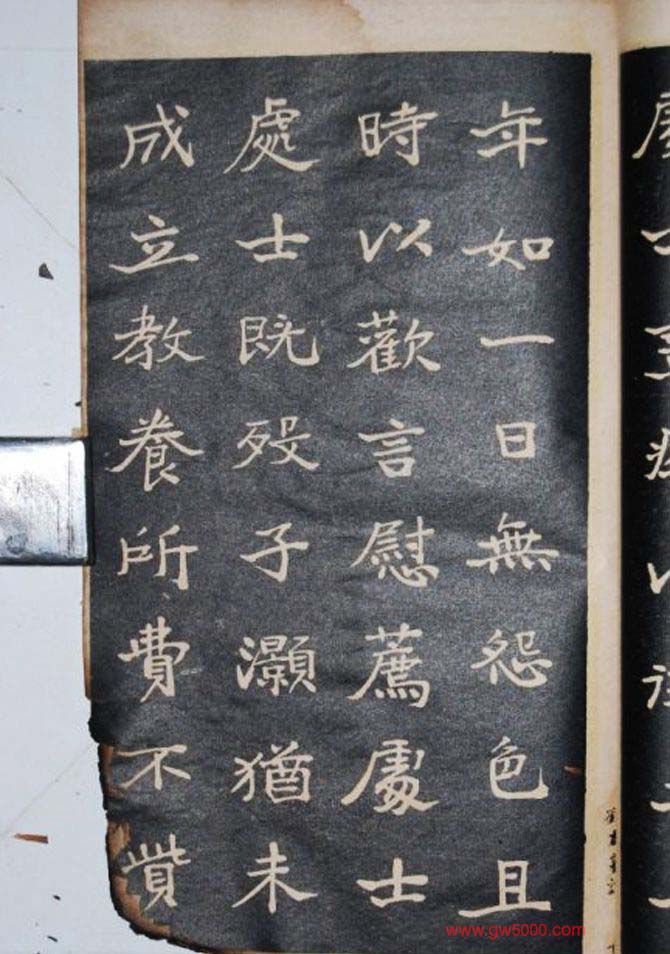 年如一日無怨色且
時以歡言慰薦處士
處士既歿子灝猶未
成立教養所費不貲
www.gw5000.com